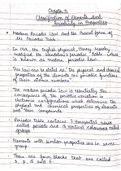 Chapter 3
Classification of Elements and
Periodicity in Properties
Modern Periodic Law and the Present form of
the Periodic Table
In 1913, the English physicist, Henry Moseley
modified the Mendeleev's Periodic Table. Which
is known as modern periodic law.
This law can be stated as "The physical and chemical
properties of the elements are periodic functions
of their atomic numbers."
The modern periodic law is essentially the
consequence of the periodic variation in
electronic configurations which determine the
physical and chemical properties of elements
and their compounds.
Periodic table contains 7 horizontal rows
called periods and 18 vertical columns called
groups
Elements with similar properties are in same
group
There are four blocks that are called
s, p, d and f.